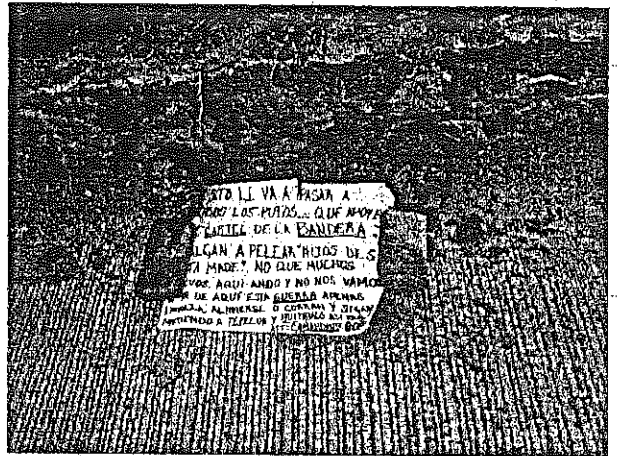 ESTO LE VA A PASAR A
TODOS LOS PUTOS... QUE APOYE
CARTEL DE LA BANDERA
SALGAN A PELEAR HIJOS DE S
MADE! NO QUE MUCHOS
AQUI ANDO Y NO NOS VAMOS
DE AQUI ESTA GUERRA APENAS
ALINIENSE O CORRAN Y SIGAN
METIENDO A Y